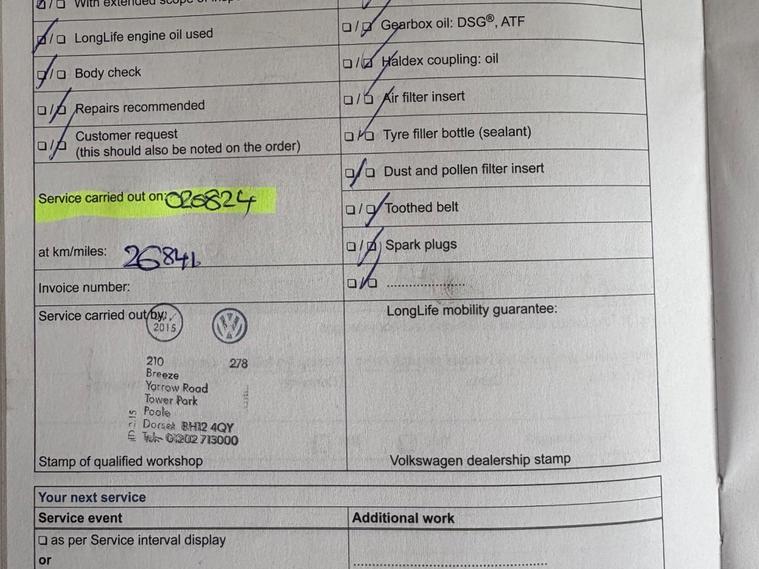 With extended scope of
Gearbox oil: DSG®, ATF
LongLife engine oil used
Haldex coupling: oil
Body check
Air filter insert
Repairs recommended
Tyre filler bottle (sealant)
Customer request
(this should also be noted on the order)
Dust and pollen filter insert
Service carried out on: 020824
Toothed belt
at km/miles: 26841
Spark plugs
Invoice number:
....................
Service carried out by:
LongLife mobility guarantee:
2015
210 278
Breeze
Yarrow Road
Tower Park
Poole
Dorset BH12 4QY
Tel: 01202 713000
Stamp of qualified workshop
Volkswagen dealership stamp
Your next service
Service event
Additional work
as per Service interval display
or